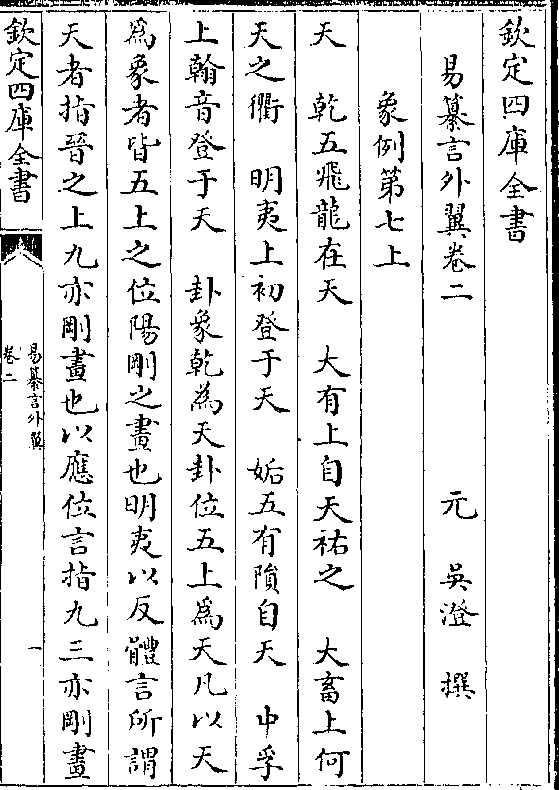 欽定四庫全書
易纂言外翼卷二
元 吳澄 撰
象例第七上
天 乾五飛龍在天 大有上自天祐之 大畜上何
天之衢 明夷上初登于天 姤五有隕自天 中孚
上翰音登于天 卦象乾為天卦位五上為天凡以天
為象者皆五上之位陽剛之畫也明夷以反體言所謂
天者指晉之上九亦剛畫也以應位言指九三亦剛畫
欽定四庫全書
易纂言外翼
卷二
一